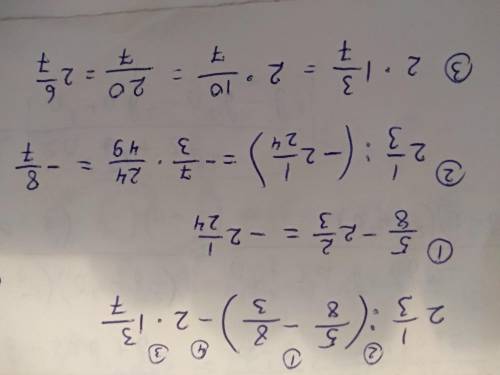 ② ① ④ ③
2 1/3 : (5/8 − 8/3) − 2 · 1 3/7
① 5/8 − 2 2/3 = − 2 1/24
② 2 1/3 : (− 2 1/24) = − 7/3 · 24/49 = − 8/7
③ 2 · 1 3/7 = 2 · 10/7 = 20/7 = 2 6/7